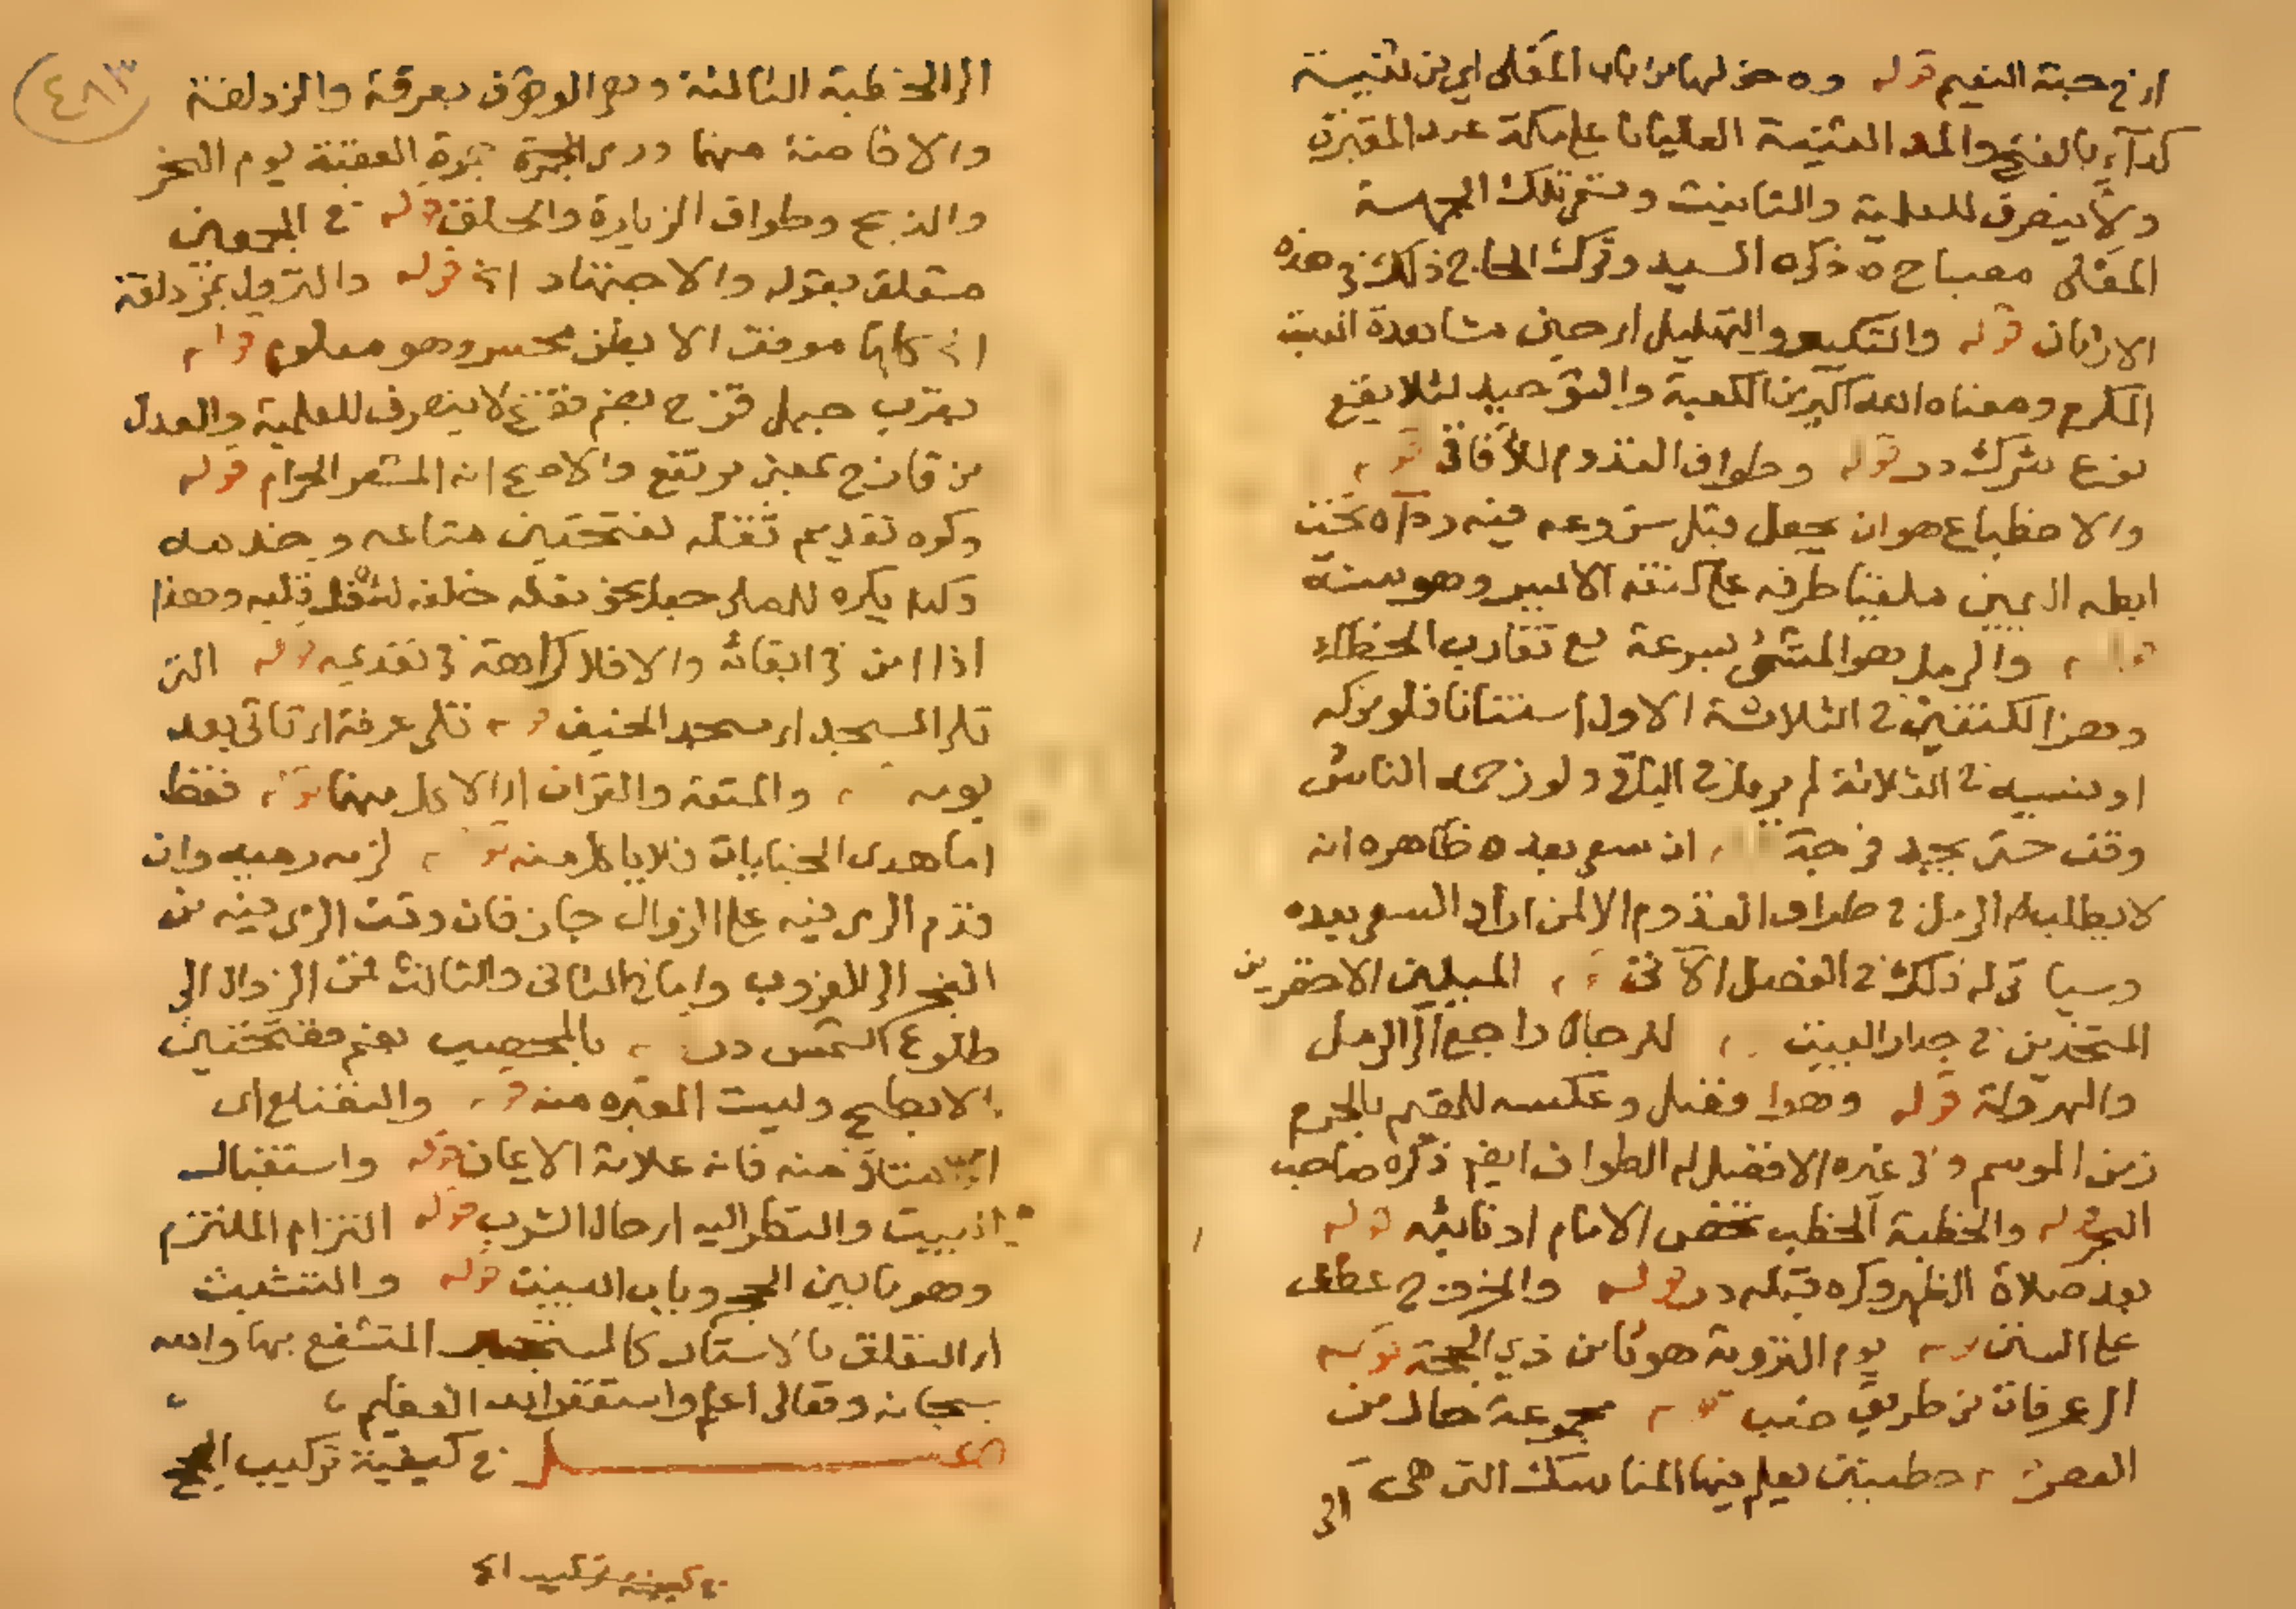 اي في جهة النعيم قوله ودخولها من باب المعلى اي من ثنية
كدآء بالفتح والمد الثنية العليا باعلى مكة عند المقبرة
ولا ينصرف للعلمية والتانيث وتسمى تلك الجهة
المعلى مصباح ه ذكره السيد وترك الحاج ذلك في هذه
الازمان قوله والتكبير والتهليل اي حين مشاهدة البيت
المكرم ومعناه الله اكبر من الكعبة والتوحيد لئلا يقع
نوع شرك در قوله وطواف القدوم للآفاقي قوله
والاضطباع هو ان يجعل قبل شروعه فيه ردآه تحت
ابطه اليمين ملقيا طرفه على كتفه الايسر وهو سنة
قوله والرمل هو المشي بسرعة مع تقارب الخطا
وهز الكتفين في الثلاثة الاول استنانا فلو تركه
او نسيه في الثلاثة لم يرمل في الباقي ولو زحمه الناس
وقف حتى يجد فرجة ان سعى بعده ظاهره انه
لا يطلب الرمل في طواف القدوم الا لمن اراد السعي بعده
وسياتي له ذلك في الفصل الآتي الميلين الاخضرين
المتخذين في جدار البيت للرجال راجع الى الرمل
والهرولة قوله وهو افضل وعكسه للمقيم بالحرم
زمن الموسم وفي غيره الافضل له الطواف ايضا ذكره صاحب
البحر قوله والخطبة الخطب تخص الامام او نائبه قوله
بعد صلاة الظهر وكره قبله در قوله والخروج عطف
على السنن قوله يوم التروية هو ثامن ذي الحجة قوله
الى عرفات من طريق ضب قوله مجموعة حال من
العصر خطبتين يعلم فيها المناسك التي هي
الى
٤٨٣
الى الخطبة الثالثة وهي الوقوف بعرفة والمزدلفة
والافاضة منهما ورمي الجمرة جمرة العقبة يوم النحر
والذبح وطواف الزيارة والحلق قوله في الجمعين
متعلق بقوله والاجتهاد الخ قوله والنزول بمزدلفة
الخ كلها موقف الا بطن محسر وهو معلوم قوله
بقرب جبل قزح بضم ففتح لا ينصرف للعلمية والعدل
من قازح بمعنى مرتفع والاصح انه المشعر الحرام قوله
وكره تقديم ثقله بفتحتين متاعه وخدمه
وكذا يكره للمصلي جعل نحو نعله خلفه لشغل قلبه وهذا
اذا امن في ابقائه والا فلا كراهة في تقديمه قوله التي
تلي المسجد اي مسجد الخيف قوله تلي عرفة اي تاتي بعد
يومه والمتعة والقران اي الاكل منهما قوله فقط
اما هدي الجنايات فلا ياكل منه قوله لزمه رميه وان
قدم الرمي فيه على الزوال جاز فان وقت الرمي فيه من
الفجر الى الغروب واما في الثاني والثالث فمن الزوال الى
طلوع الشمس در بالمحصب بضم ففتحتين
الابطح وليست المقبره منه قوله والتضلع اي
الامتلاء منه فانه علامة الايمان قوله واستقبال
البيت والنظر اليه اي حال الشرب قوله التزام الملتزم
وهو ما بين الحجر وباب البيت قوله والتشبث
اي التعلق بالاستار كالمستجير المتشفع بها والله
سبحانه وتعالى اعلم واستغفر الله العظيم
فصل في كيفية تركيب الحج
في كيفية تركيب